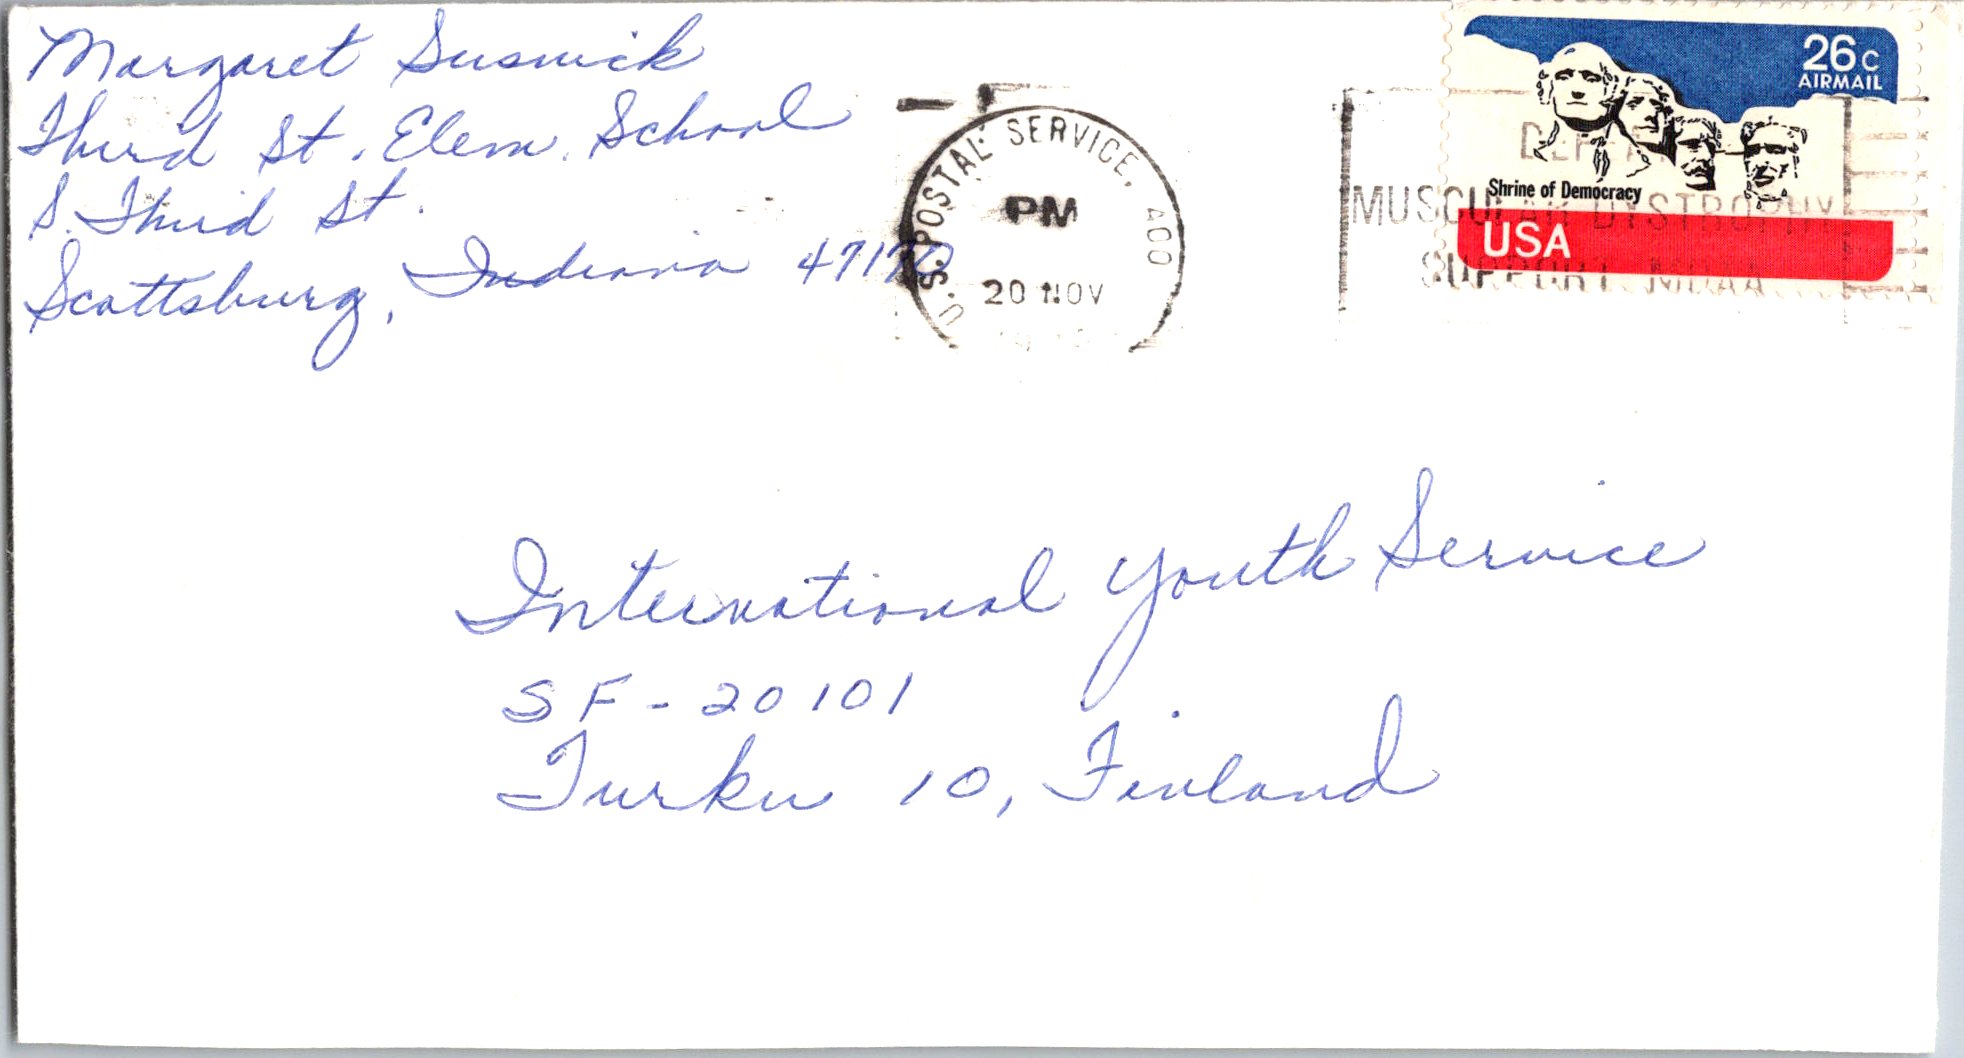 Margaret Susnick
Third St. Elem. School
S. Third St.
Scottsburg, Indiana 47170
U.S. POSTAL SERVICE, 400
PM
20 NOV
26c
AIRMAIL
Shrine of Democracy
USA
MUSCULAR DYSTROPHY
SUPPORT MDAA
International Youth Service
SF-20101
Turku 10, Finland